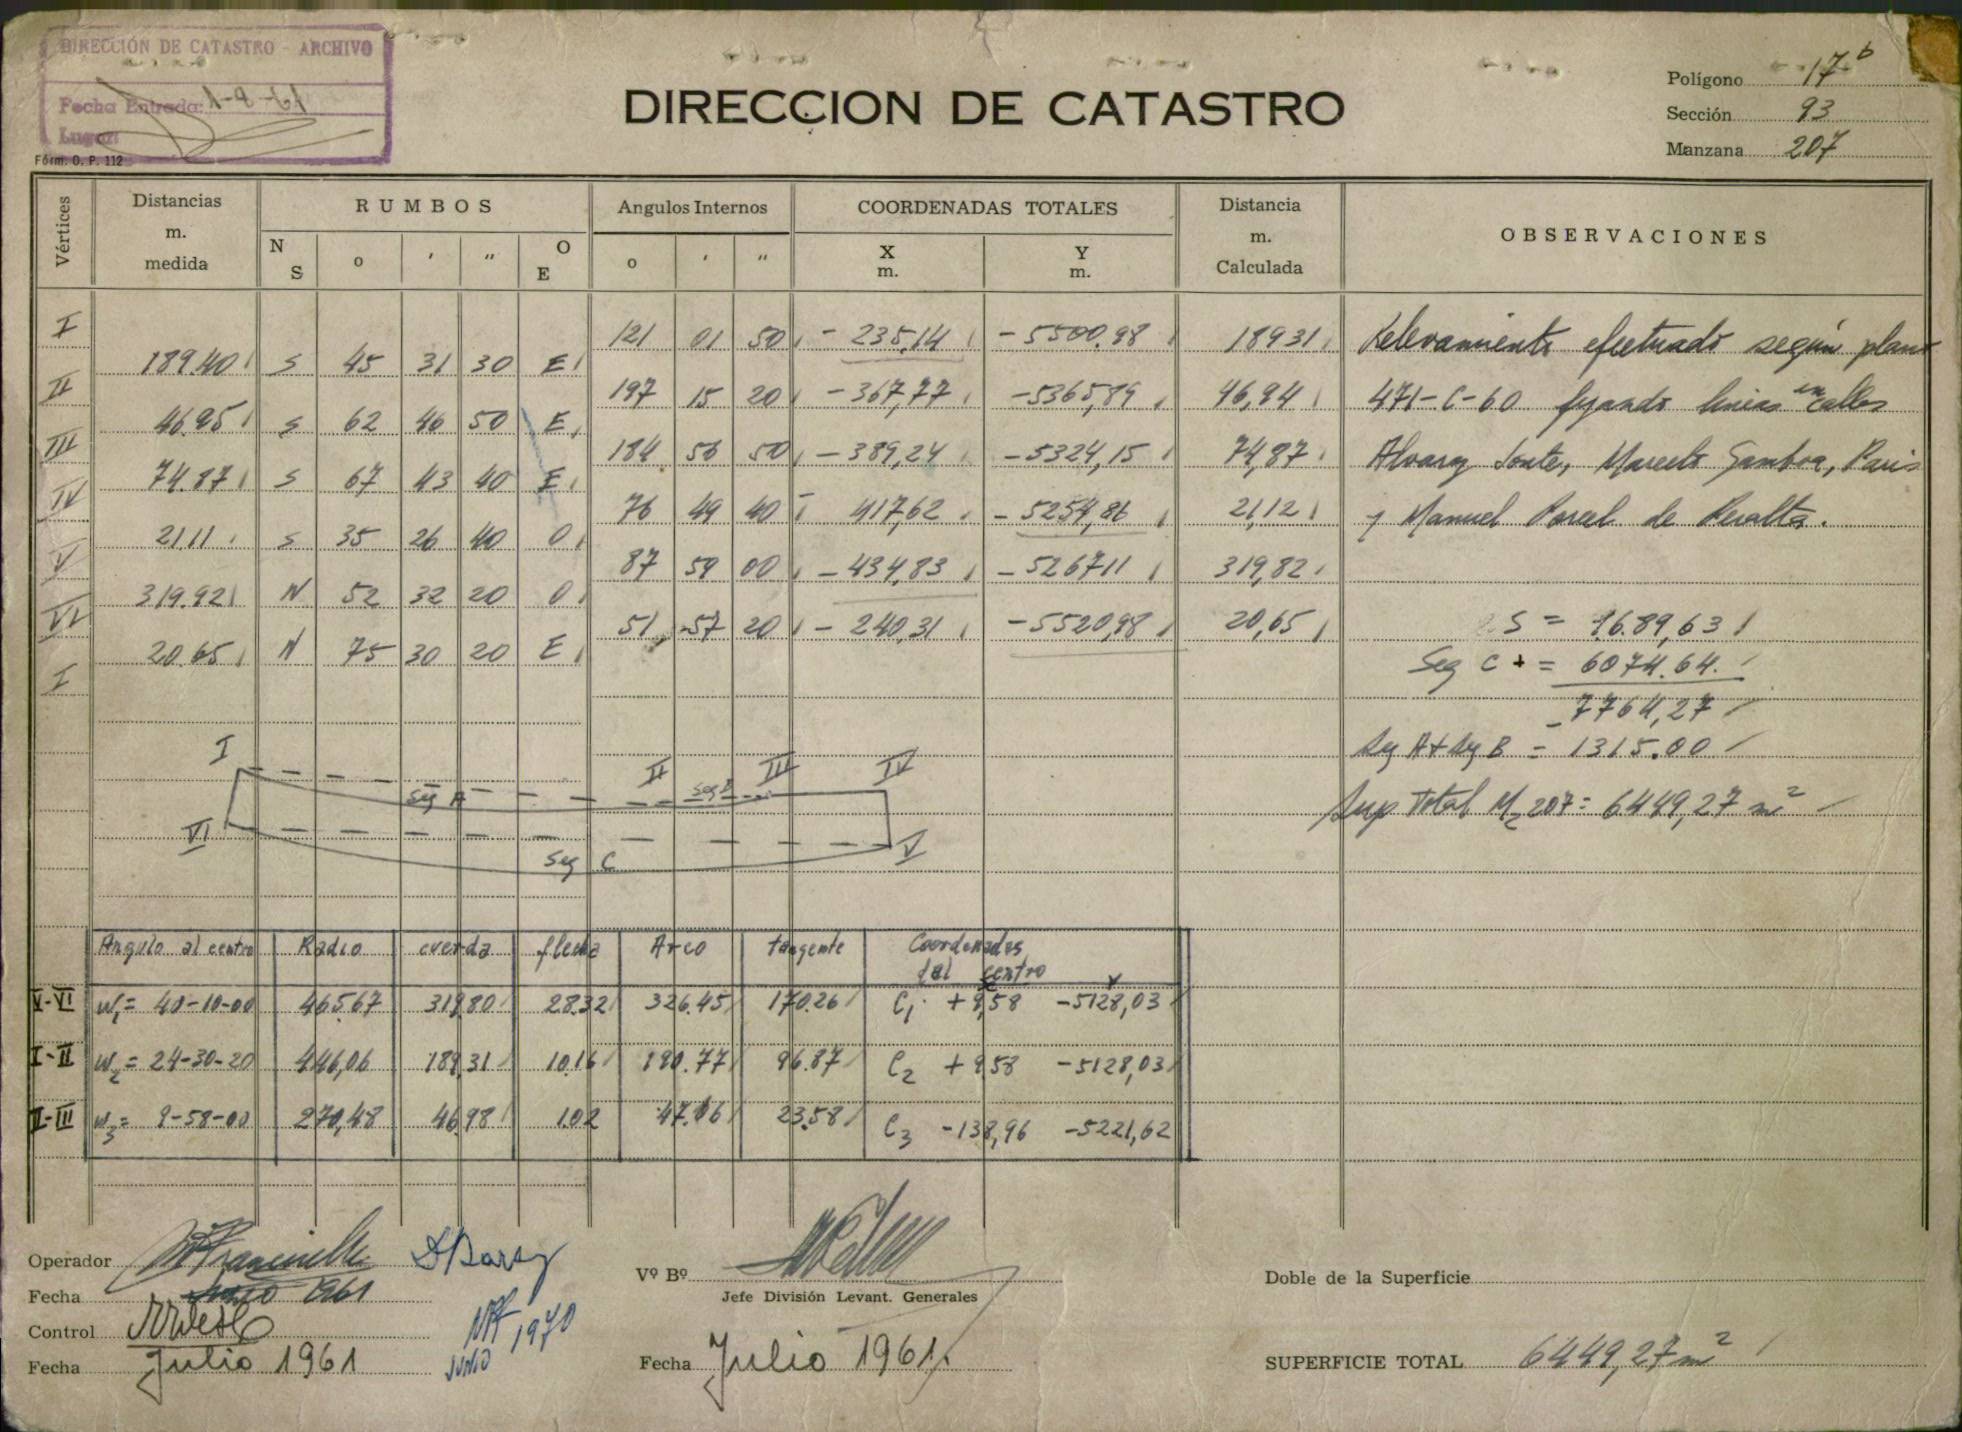 DIRECCIÓN DE CATASTRO - ARCHIVO
Fecha Entrada: 1-9-61
Lugar:
Fórm. O. P. 112
DIRECCION DE CATASTRO
Polígono 17 b
Sección 93
Manzana 207
Vértices
Distancias m. medida
RUMBOS
N S o ′ ″ O E
Angulos Internos
o ′ ″
COORDENADAS TOTALES
X m. Y m.
Distancia m. Calculada
OBSERVACIONES
I 121 01 50 - 235,14 - 5500,98 189.31
189.40 S 45 31 30 E
II 197 15 20 - 367,77 - 5365,89 46,94
46.95 S 62 46 50 E
III 184 56 50 - 389,24 - 5324,15 74,87
74.87 S 67 43 40 E
IV 76 49 40 - 417,62 - 5254,86 21,12
21.11 S 35 26 40 O
V 87 59 00 - 434,83 - 5267,11 319,82
319.92 N 52 32 20 O
VI 51 57 20 - 240,31 - 5520,98 20,65
20.65 N 75 30 20 E
I
Relevamiento efectuado según plano
471-C-60 fijando lineas en calles
Alvarez Jonte, Marcelo Gamboa, Paris
y Manuel Porcel de Peralta.
S = 1689,63
Seg C + = 6074.64.
7764,27
Seg A + Seg B = 1315.00
Sup Total Mz 207 = 6449,27 m2
I II III IV
Seg A Seg B
VI V
Seg C
Angulo al centro Radio cuerda flecha Arco tangente Coordenadas del centro
x y
V-VI w1= 40-10-00 465.67 319,80 28.32 326.45 170.26 C1 + 9,58 -5128,03
I-II w2= 24-30-20 446,06 189,31 10.16 190.77 96.87 C2 + 9,58 -5128,03
II-III w3= 9-58-00 270,48 46.98 1.02 47.06 23.58 C3 -138,96 -5221,62
Operador
Fecha 1961
Control
Fecha Julio 1961
Junio 1970
Vº Bº
Jefe División Levant. Generales
Fecha Julio 1961.
Doble de la Superficie
SUPERFICIE TOTAL 6449,27 m2